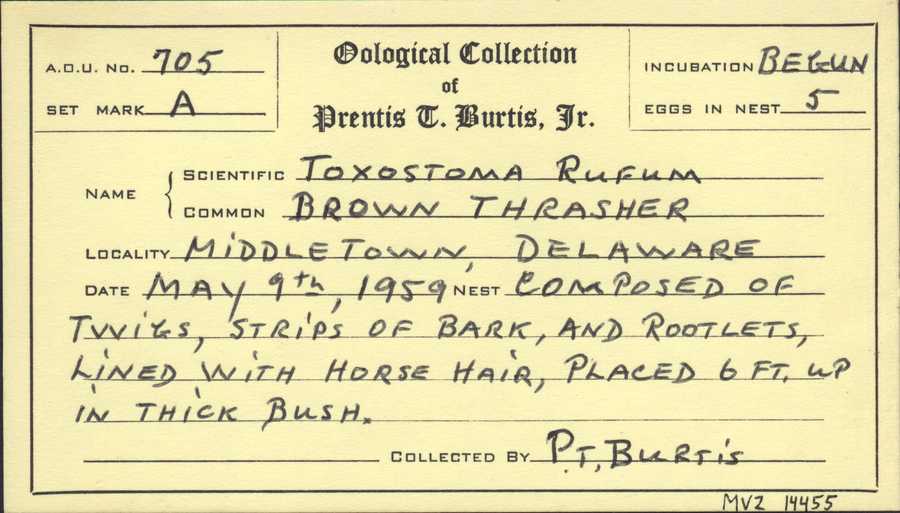 A.O.U. No. 705
SET MARK A
Oological Collection
of
Prentis T. Burtis, Jr.
INCUBATION BEGUN
EGGS IN NEST 5
NAME { SCIENTIFIC TOXOSTOMA RUFUM
COMMON BROWN THRASHER
LOCALITY MIDDLETOWN, DELAWARE
DATE MAY 9th, 1959 NEST COMPOSED OF
TWIGS, STRIPS OF BARK, AND ROOTLETS,
LINED WITH HORSE HAIR, PLACED 6 FT. UP
IN THICK BUSH.
COLLECTED BY P.T. BURTIS
MVZ 14455